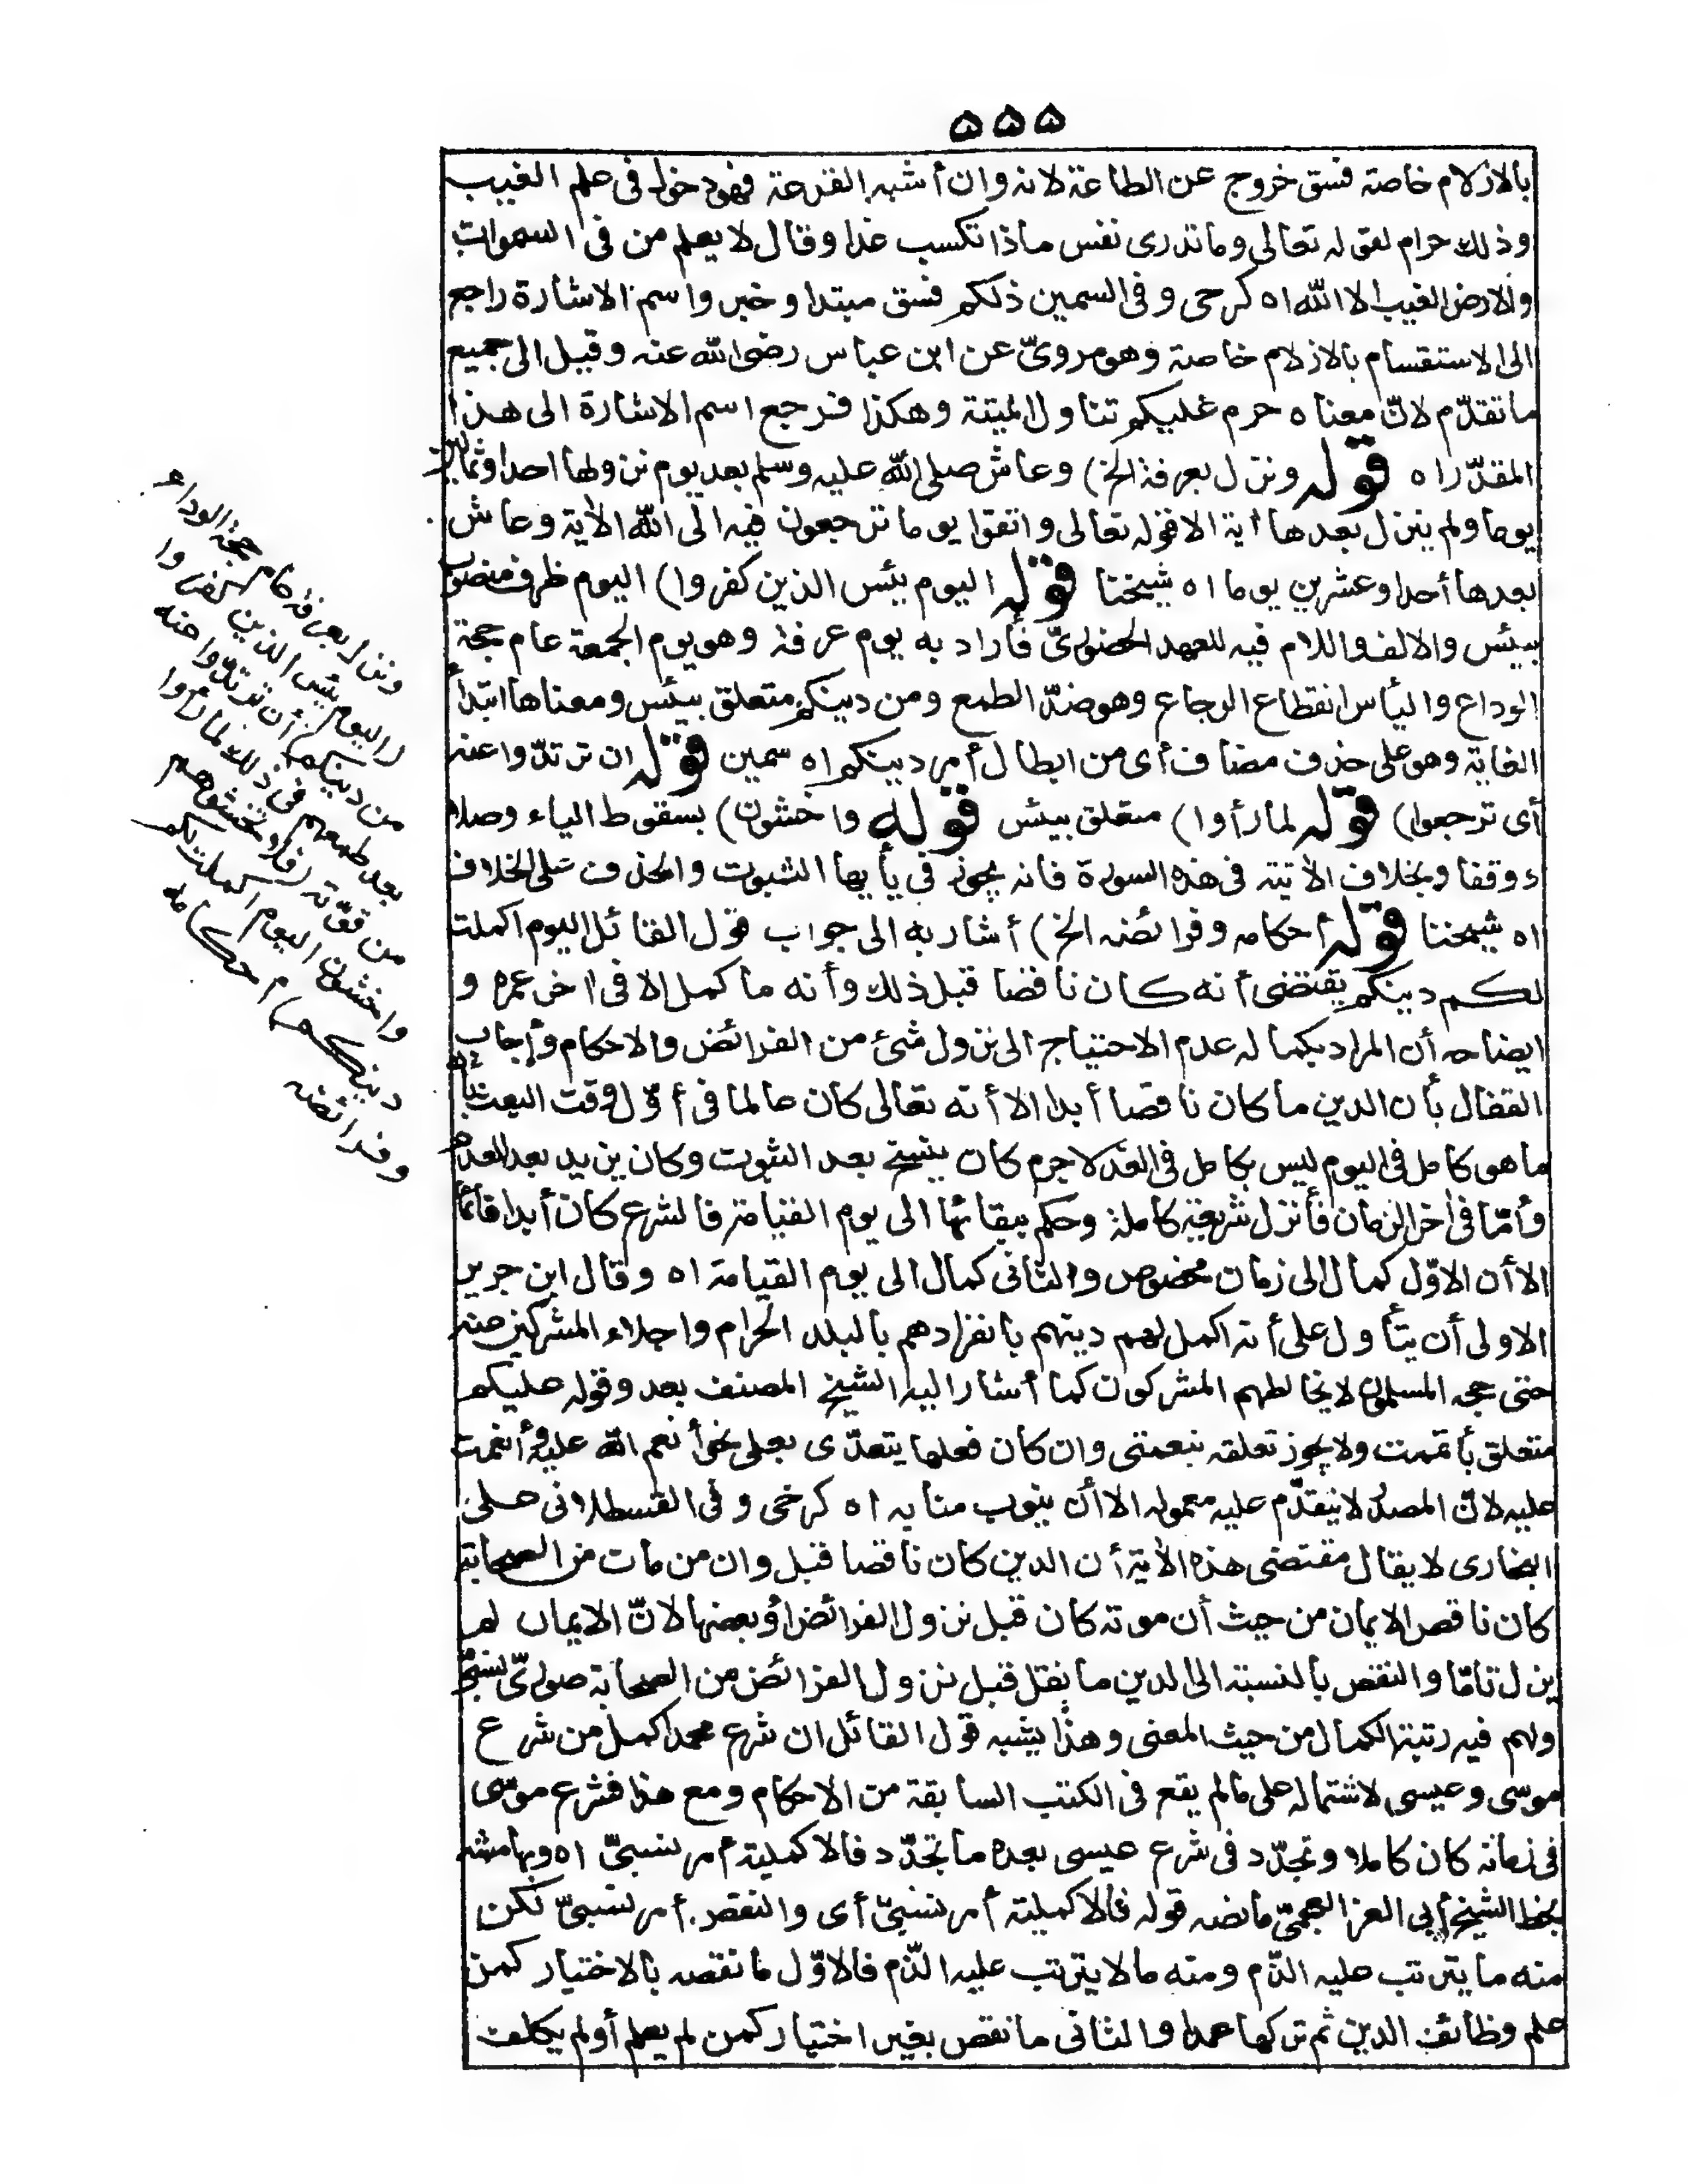 ٥٥٥
بالازلام خاصة فسق خروج عن الطاعة لانه وان أشبه القرعة فهو دخول فى علم الغيب
وذلك حرام لقوله تعالى وما تدرى نفس ماذا تكسب غدا وقال لا يعلم من فى السموات
والارض الغيب الا الله اه كرخى وفى السمين ذلكم فسق مبتدا وخبر واسم الاشارة راجع
الى الاستقسام بالازلام خاصة وهو مروىّ عن ابن عباس رضى الله عنه وقيل الى جميع
ما تقدّم لانّ معناه حرم عليكم تناول الميتة وهكذا فرجع اسم الاشارة الى هذا
المقدّر اه قوله ونزل بعرفة الخ) وعاش صلى الله عليه وسلم بعد يوم نزولها احدا وثمانين
يوما ولم ينزل بعدها اية الا قوله تعالى واتقوا يوما ترجعون فيه الى الله الآية وعاش
بعدها أحدا وعشرين يوما اه شيخنا قوله اليوم يئس الذين كفروا) اليوم ظرف منصوب
بيئس والالف واللام فيه للعهد الحضورىّ فأراد به يوم عرفة وهو يوم الجمعة عام حجة
الوداع واليأس انقطاع الرجاء وهو ضدّ الطمع ومن دينكم متعلق بيئس ومعناها ابتداء
الغاية وهو على حذف مضاف أى من ابطال أمر دينكم اه سمين قوله ان ترتدّوا عنه
أى ترجعوا) قوله لما رأوا) متعلق بيئس قوله واخشون) بسقوط الياء وصلا
ووقفا وبخلاف الآتية فى هذه السورة فانه يجوز فى يأيها الثبوت والحذف على الخلاف
اه شيخنا قوله أحكامه وفرائضه الخ) أشار به الى جواب قول القائل اليوم اكملت
لكم دينكم يقتضى أنه كان ناقصا قبل ذلك وأنه ما كمل الا فى اخر عمره و
ايضاحه أن المراد بكماله عدم الاحتياج الى نزول شئ من الفرائض والاحكام وأجاب
القفال بأن الدين ما كان ناقصا أبدا الا أنه تعالى كان عالما فى أوّل وقت البعث بأن
ما هو كامل فى اليوم ليس بكامل فى الغد لا جرم كان ينسخ بعد الثبوت وكان يزيد بعد العدم
وأمّا فى اخر الزمان فأنزل شريعة كاملة وحكم ببقائها الى يوم القيامة فالشرع كان أبدا قائما
الا أن الاوّل كمال الى زمان مخصوص والثانى كمال الى يوم القيامة اه وقال ابن جرير
الاولى أن يتأول على أنه اكمل لهم دينهم بانفرادهم بالبلد الحرام واجلاء المشركين عنه
حتى حجه المسلمون لا يخالطهم المشركون كما أشار اليه الشيخ المصنف بعد وقوله عليكم
متعلق بأتممت ولا يجوز تعلقه بنعمتى وان كان فعلها يتعدّى بعلى نحو أنعم الله عليه وأنعمت
عليه لانّ المصدر لا يتقدّم عليه معموله الا أن ينوب منابه اه كرخى وفى القسطلانى على
البخارى لا يقال مقتضى هذه الآية أن الدين كان ناقصا قبل وان من مات من الصحابة
كان ناقص الايمان من حيث أن موته كان قبل نزول الفرائض أو بعضها لانّ الايمان لم
يزل تامّا والنقص بالنسبة الى الدين ما نقل قبل نزول الفرائض من الصحابة صورىّ نسبىّ
ولهم فيه رتبة الكمال من حيث المعنى وهذا يشبه قول القائل ان شرع محمد اكمل من شرع
موسى وعيسى لاشتماله على ما لم يقع فى الكتب السابقة من الاحكام ومع هذا فشرع موسى
فى زمانه كان كاملا وتجدّد فى شرع عيسى بعده ما تجدّد فالاكملية أمر نسبىّ اه وبهامشه
بخط الشيخ أبى العز العجمىّ ما نصه قوله فالاكملية أمر نسبىّ أى والنقص أمر نسبىّ لكن
منه ما يترتب عليه الذّم ومنه ما لا يترتب عليه الذّم فالاوّل ما نقصه بالاختيار كمن
علم وظائف الدين ثم تركها عمدا والثانى ما نقص بغير اختيار كمن لم يعلم أو لم يكلف
ونزل بعرفة عام حجة الوداع
(اليوم يئس الذين كفروا
من دينكم) أن ترتدّوا عنه
بعد طمعهم فى ذلك لما رأوا
من قوّته (فلا تخشوهم
واخشون اليوم اكملت لكم
دينكم) أحكامه
وفرائضه